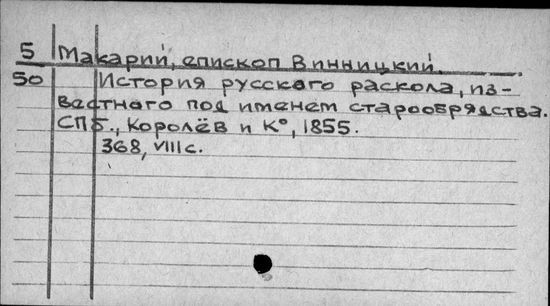 5 Макарий, епископ Винницкий.
50 История русского раскола, из-
вестного под именем старообрядства.
СПб., Королёв и К°, 1855.
368, VIII с.